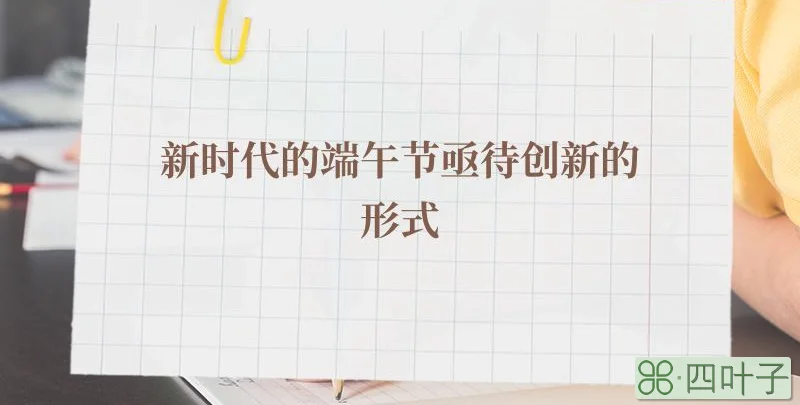 新时代的端午节亟待创新的
形式
四叶子